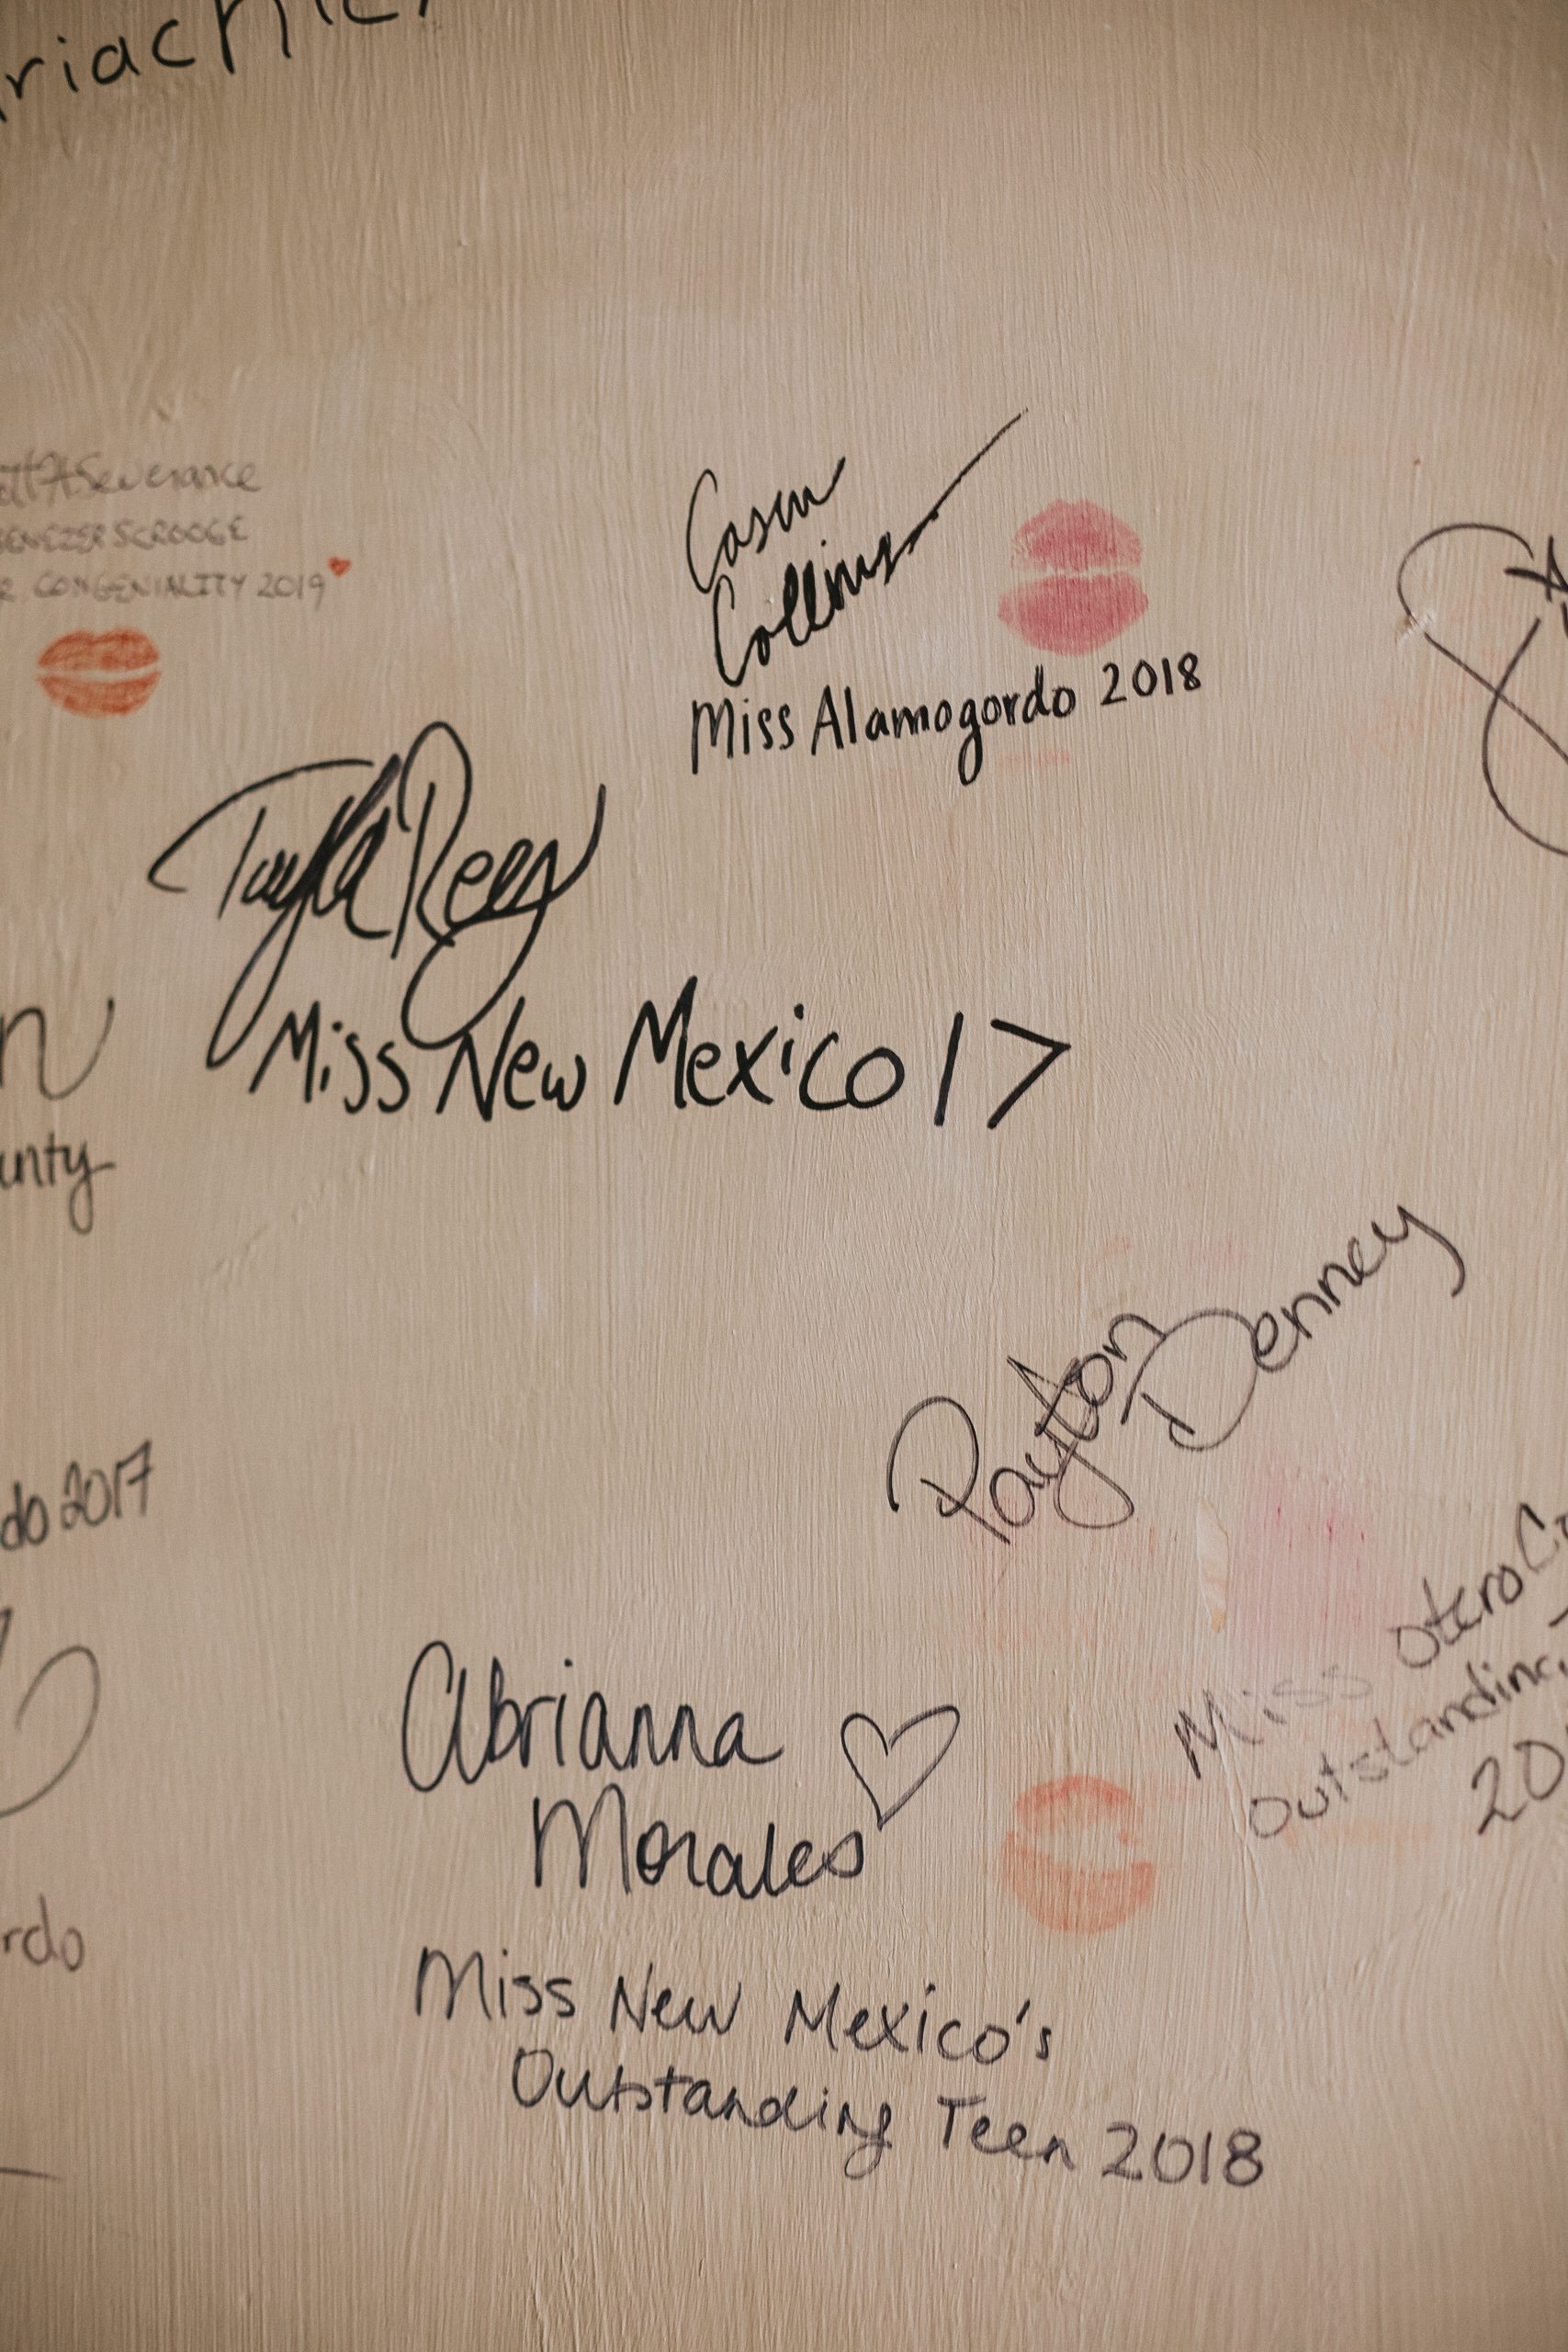 Severance
SCROOGE
CONGENIALITY 2019
Collins
Miss Alamogordo 2018
Tayla Rey
Miss New Mexico 17
unty
Payton
Denney
do 2017
Miss Otero
Outstanding
Abrianna
Morales
rdo
Miss New Mexico's
Outstanding Teen 2018